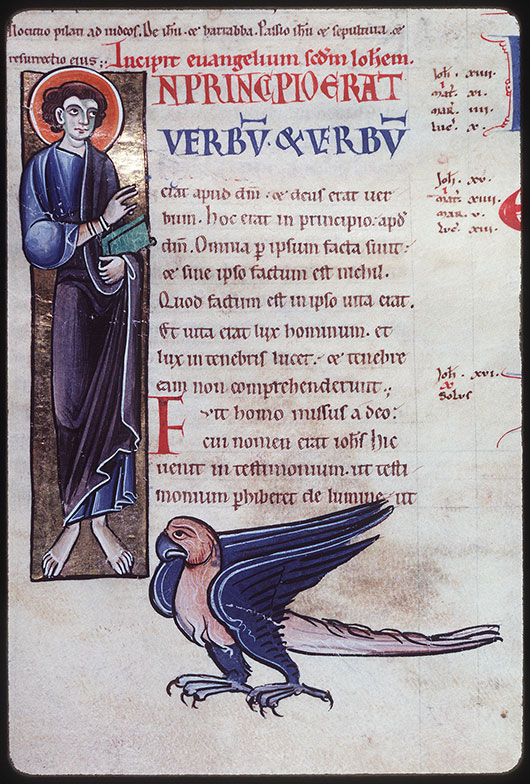 Allocutio pilati ad iudeos. De ihũ · & barrabba. Passio ihũ & sepultura · &
resurrectio eius ;; Incipit euangelium scdm iohem.
N PRINCIPIO ERAT
VERBŪ · & VERBŪ
erat apud dm̄ · & deus erat uer
bum. hoc erat in principio · apđ
dm̄. Omnia ꝑ ipsum facta sunt ·
& sine ipso factum est nichil.
Quod factum est in ipso uita erat.
Et uita erat lux hominum · et
lux in tenebris lucet · & tenebre
eam non comprehenderunt ;
Fuit homo missus a deo :
cui nomen erat iohs̄ hic
uenit in testimonium · ut testi
monium ꝑhiberet de lumine · ut
Ioh · xiiii ·
mat · xi ·
mar · iiii ·
luc · x ·
Ioh · xv ·
mat · xiiii ·
mar · v ·
luc · xiii ·
Ioh · xvi ·
x
Solus